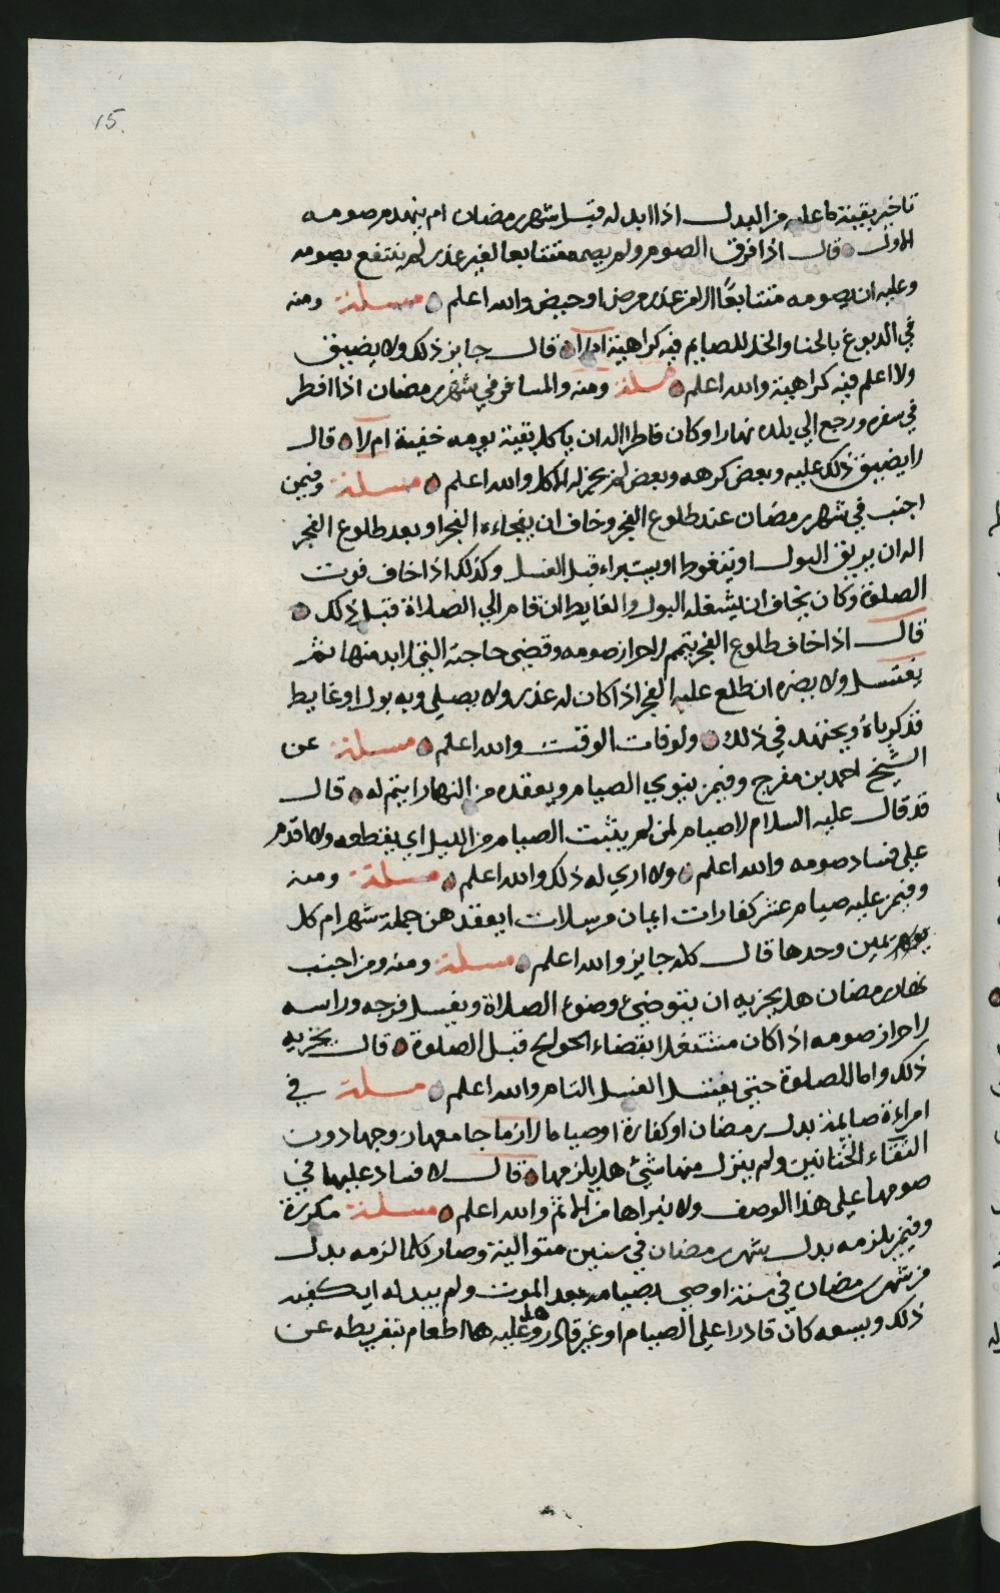 15.
تاخير بقية ما عليه من البدل اذا ابدله قبل شهر رمضان ام ينهدم صومه
الاول قال اذا فرق الصوم ولم يصمه متتابعا لغير عذر لم ينتفع بصومه
وعليه ان يصومه متتابعًا الا من عذر مرض او حيض والله اعلم مسئلة ومنه
في الدبوغ بالحنا والخل للصايم فيه كراهية ام لا قال جايز ذلك ولا يضيق
ولا اعلم فيه كراهية والله اعلم مسئلة ومنه والمسافر في شهر رمضان اذا افطر
في سفره ورجع الي بلده نهارا وكان فاطرا اله ان ياكل بقية يومه خفية ام لا قال
لا يضيق ذلك عليه وبعض كرهه وبعض لم يجز له الاكل والله اعلم مسئلة وفيمن
اجنب في شهر رمضان عند طلوع الفجر وخاف ان يفجاءه الفجر او بعد طلوع الفجر
اله ان يريق البول او يتغوط او يستبراء قبل الغسل وكذلك اذا خاف فوت
الصلوة وكان يخاف ان يشغله البول والغايط ان قام الي الصلاة قبل ذلك
قال اذا خاف طلوع الفجر يتمم لاحراز صومه وقضي حاجته التي لا بد منها ثم
يغتسل ولا يضره ان طلع عليه الفجر اذا كان له عذر ولا يصلي وبه بول او غايط
فذكرناه ويجتهد في ذلك ولو فات الوقت والله اعلم مسئلة عن
الشيخ احمد بن مفرج وفيمن ينوي الصيام ويعقده من النهار ايتم له قال
قد قال عليه السلام لا صيام لمن لم يثبت الصيام من الليل اي يقطعه ولا اقدم
علي فساد صومه والله اعلم ولا اري له ذلك والله اعلم مسئلة ومنه
وفيمن عليه صيام عشر كفارات ايمان مرسلات ايعقدهن جملة شهر ام كل
يوم يمين وحدها قال كله جايز والله اعلم مسئلة ومنه ومن اجنب
نهار رمضان هل يجزيه ان يتوضئ وضوء الصلاة ويغسل فرجه وراسه
لاحراز صومه اذا كان مشتغلا بقضاء الحوايج قبل الصلوة قال يجزيه
ذلك واما للصلوة حتي يغتسل الغسل التام والله اعلم مسئلة في
امراءة صايمة بدل رمضان او كفارة او صياما لازما جامعها زوجها دون
التقاء الختانين ولم ينزل منها شيئ هل يلزمها قال لا فساد عليها في
صومها علي هذا الوصف ولا نبراها من الاثم والله اعلم مسئلة مكررة
وفيمن يلزمه بدل شهر رمضان في سنين متوالية وصار كلما لزمه بدل
من شهر رمضان في سنة اوصي بصيامه بعد الموت ولم يبدله ايكفيه
ذلك ويسعه كان قادرا علي الصيام او غير قادر وهل عليه هما اطعام بتفريطه عن